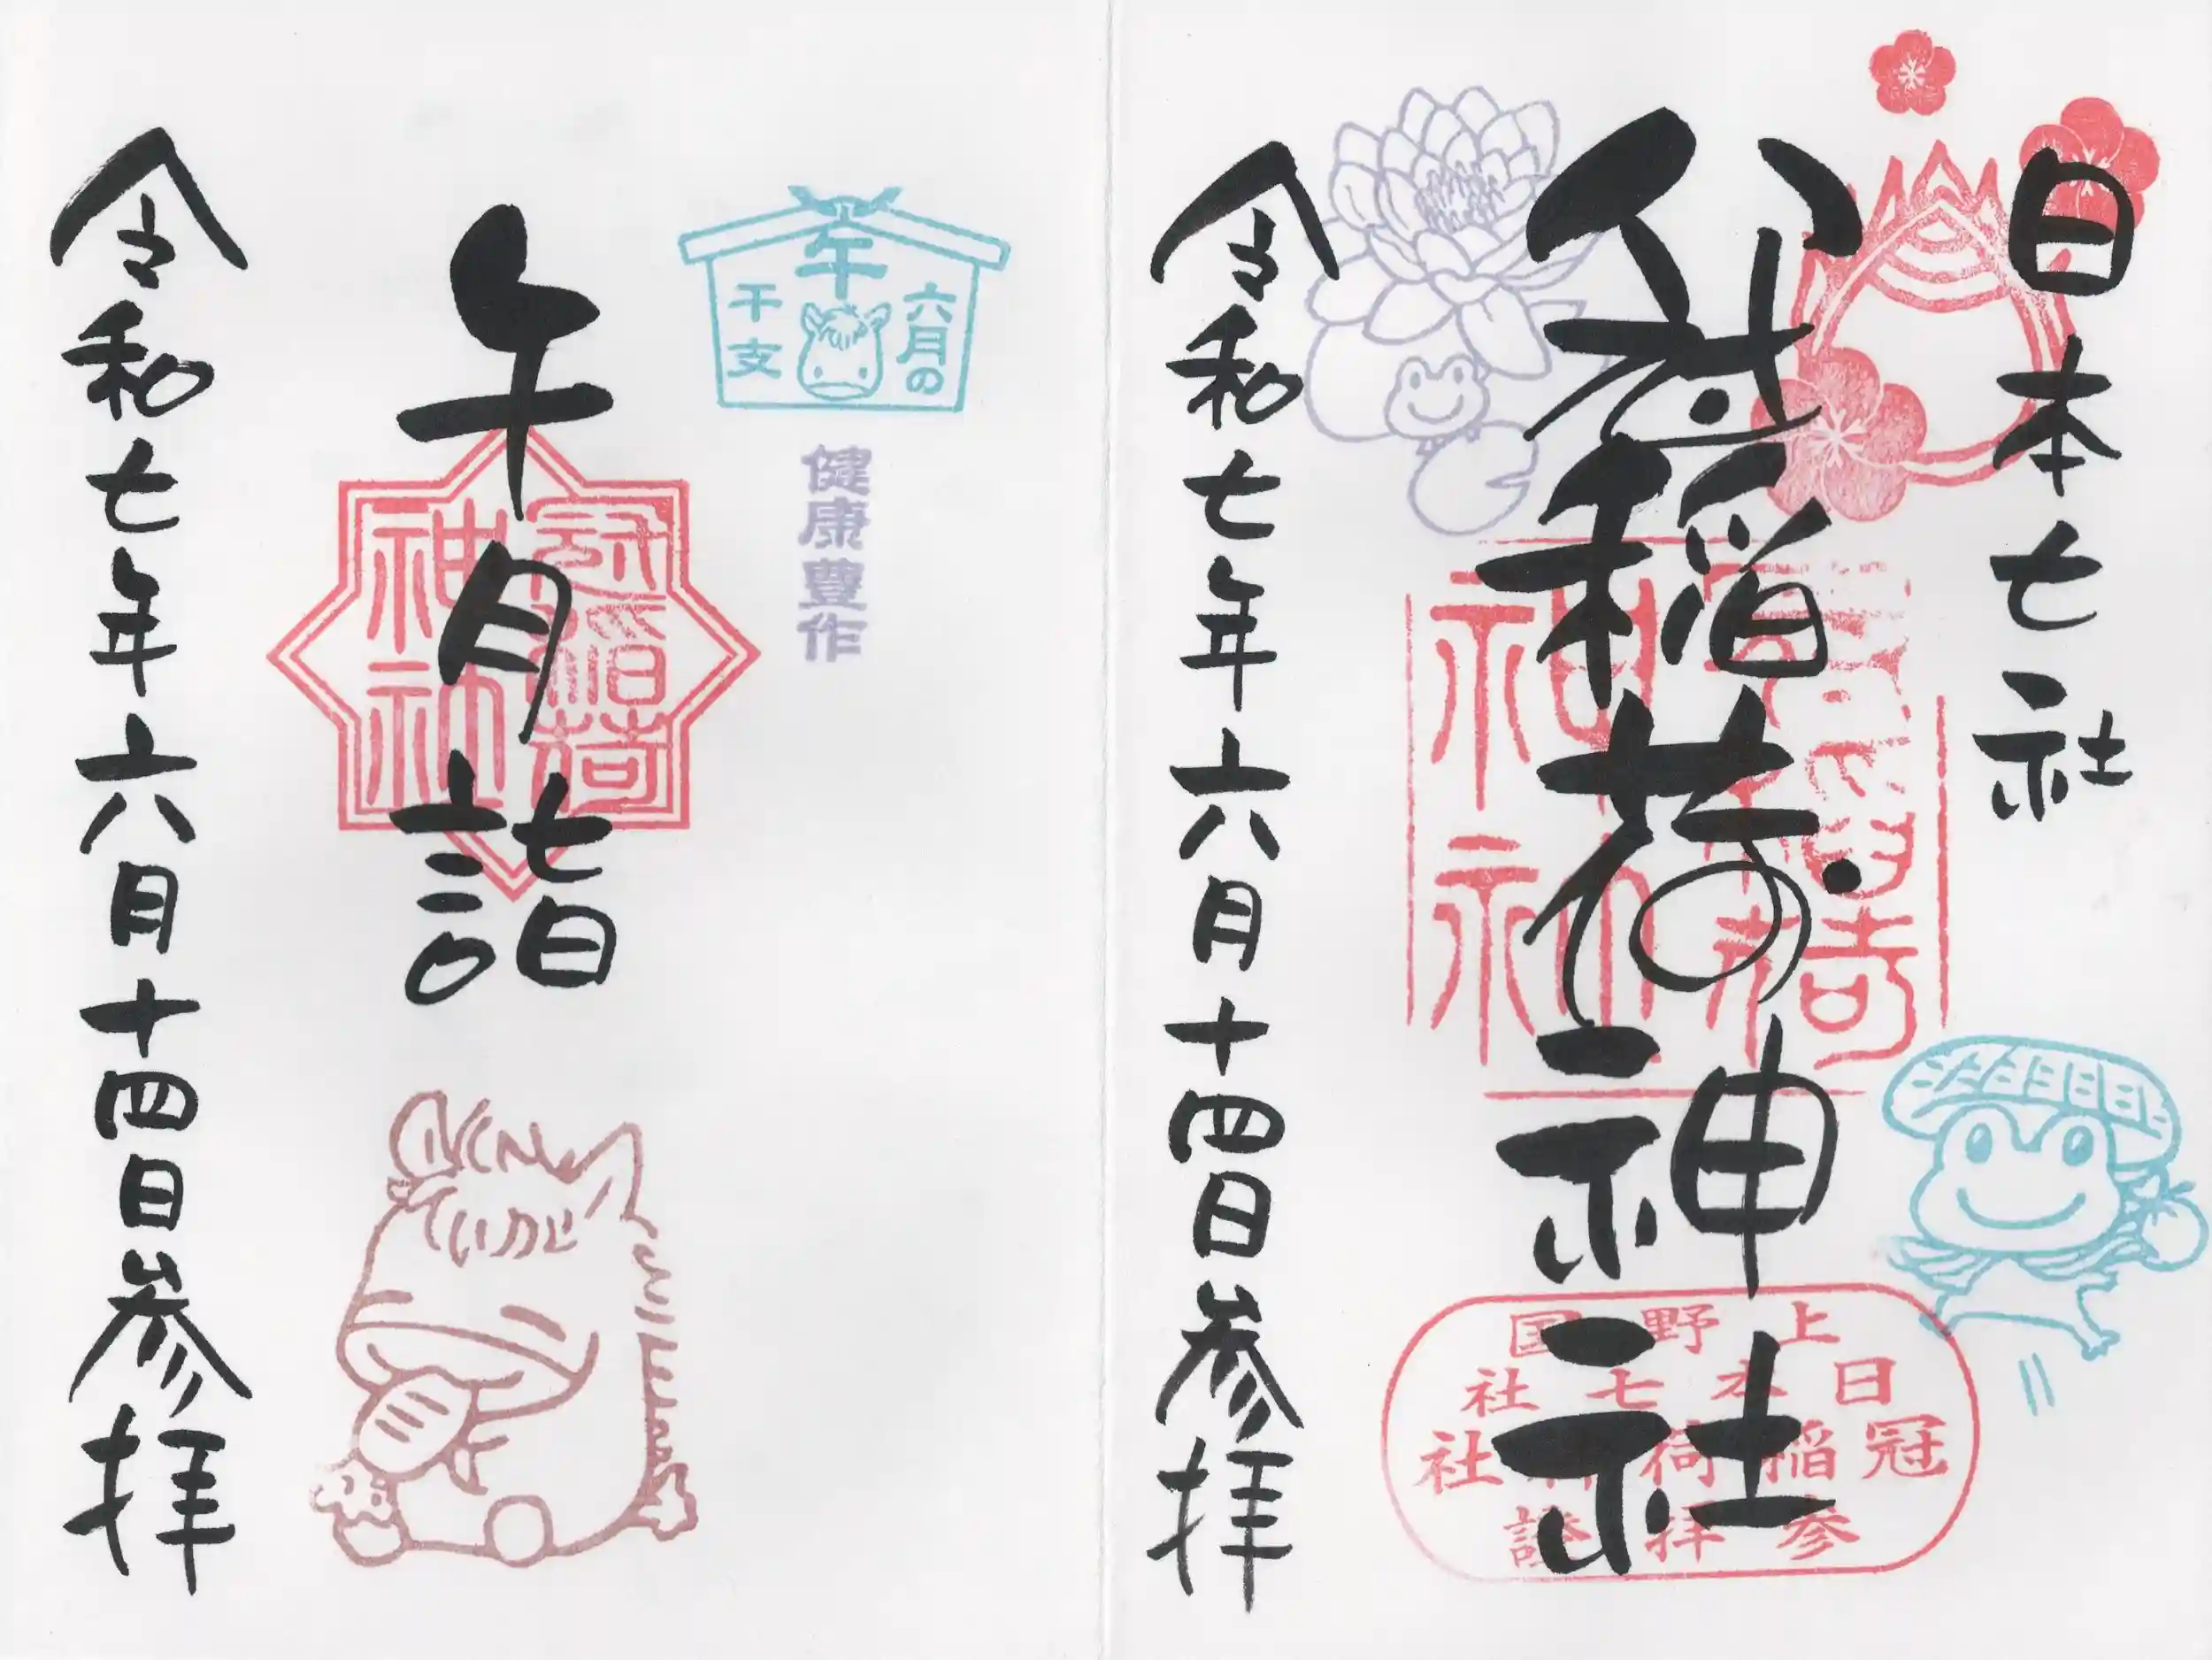 日本七社
冠稲荷神社
上野国
日本七社
冠稲荷神社
参拝證
令和七年六月十四日参拝
午
六月の
干支
健康豊作
午月詣
冠稲荷
神社
令和七年六月十四日参拝